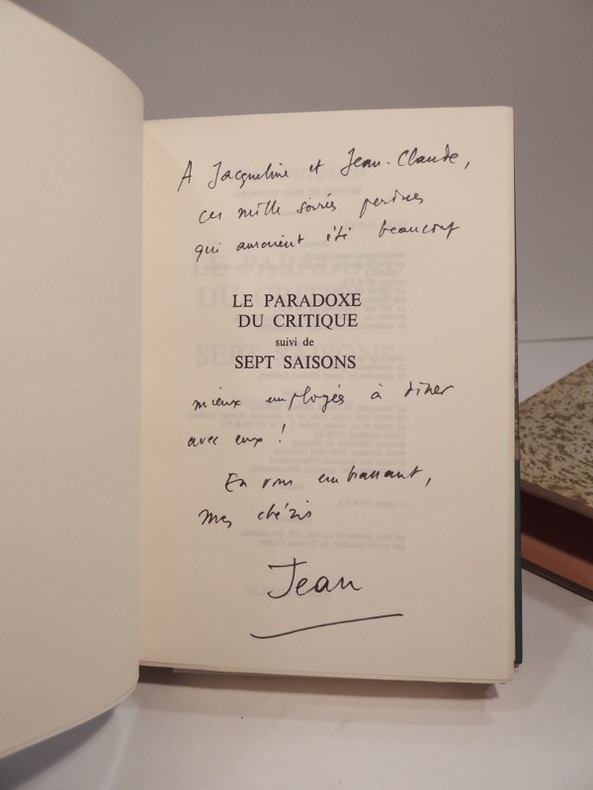 A Jacqueline et Jean-Claude,
ces mille soirées perdues
qui auraient été beaucoup
LE PARADOXE
DU CRITIQUE
suivi de
SEPT SAISONS
mieux employées à dîner
avec eux !
En vous embrassant,
mes chéris
Jean